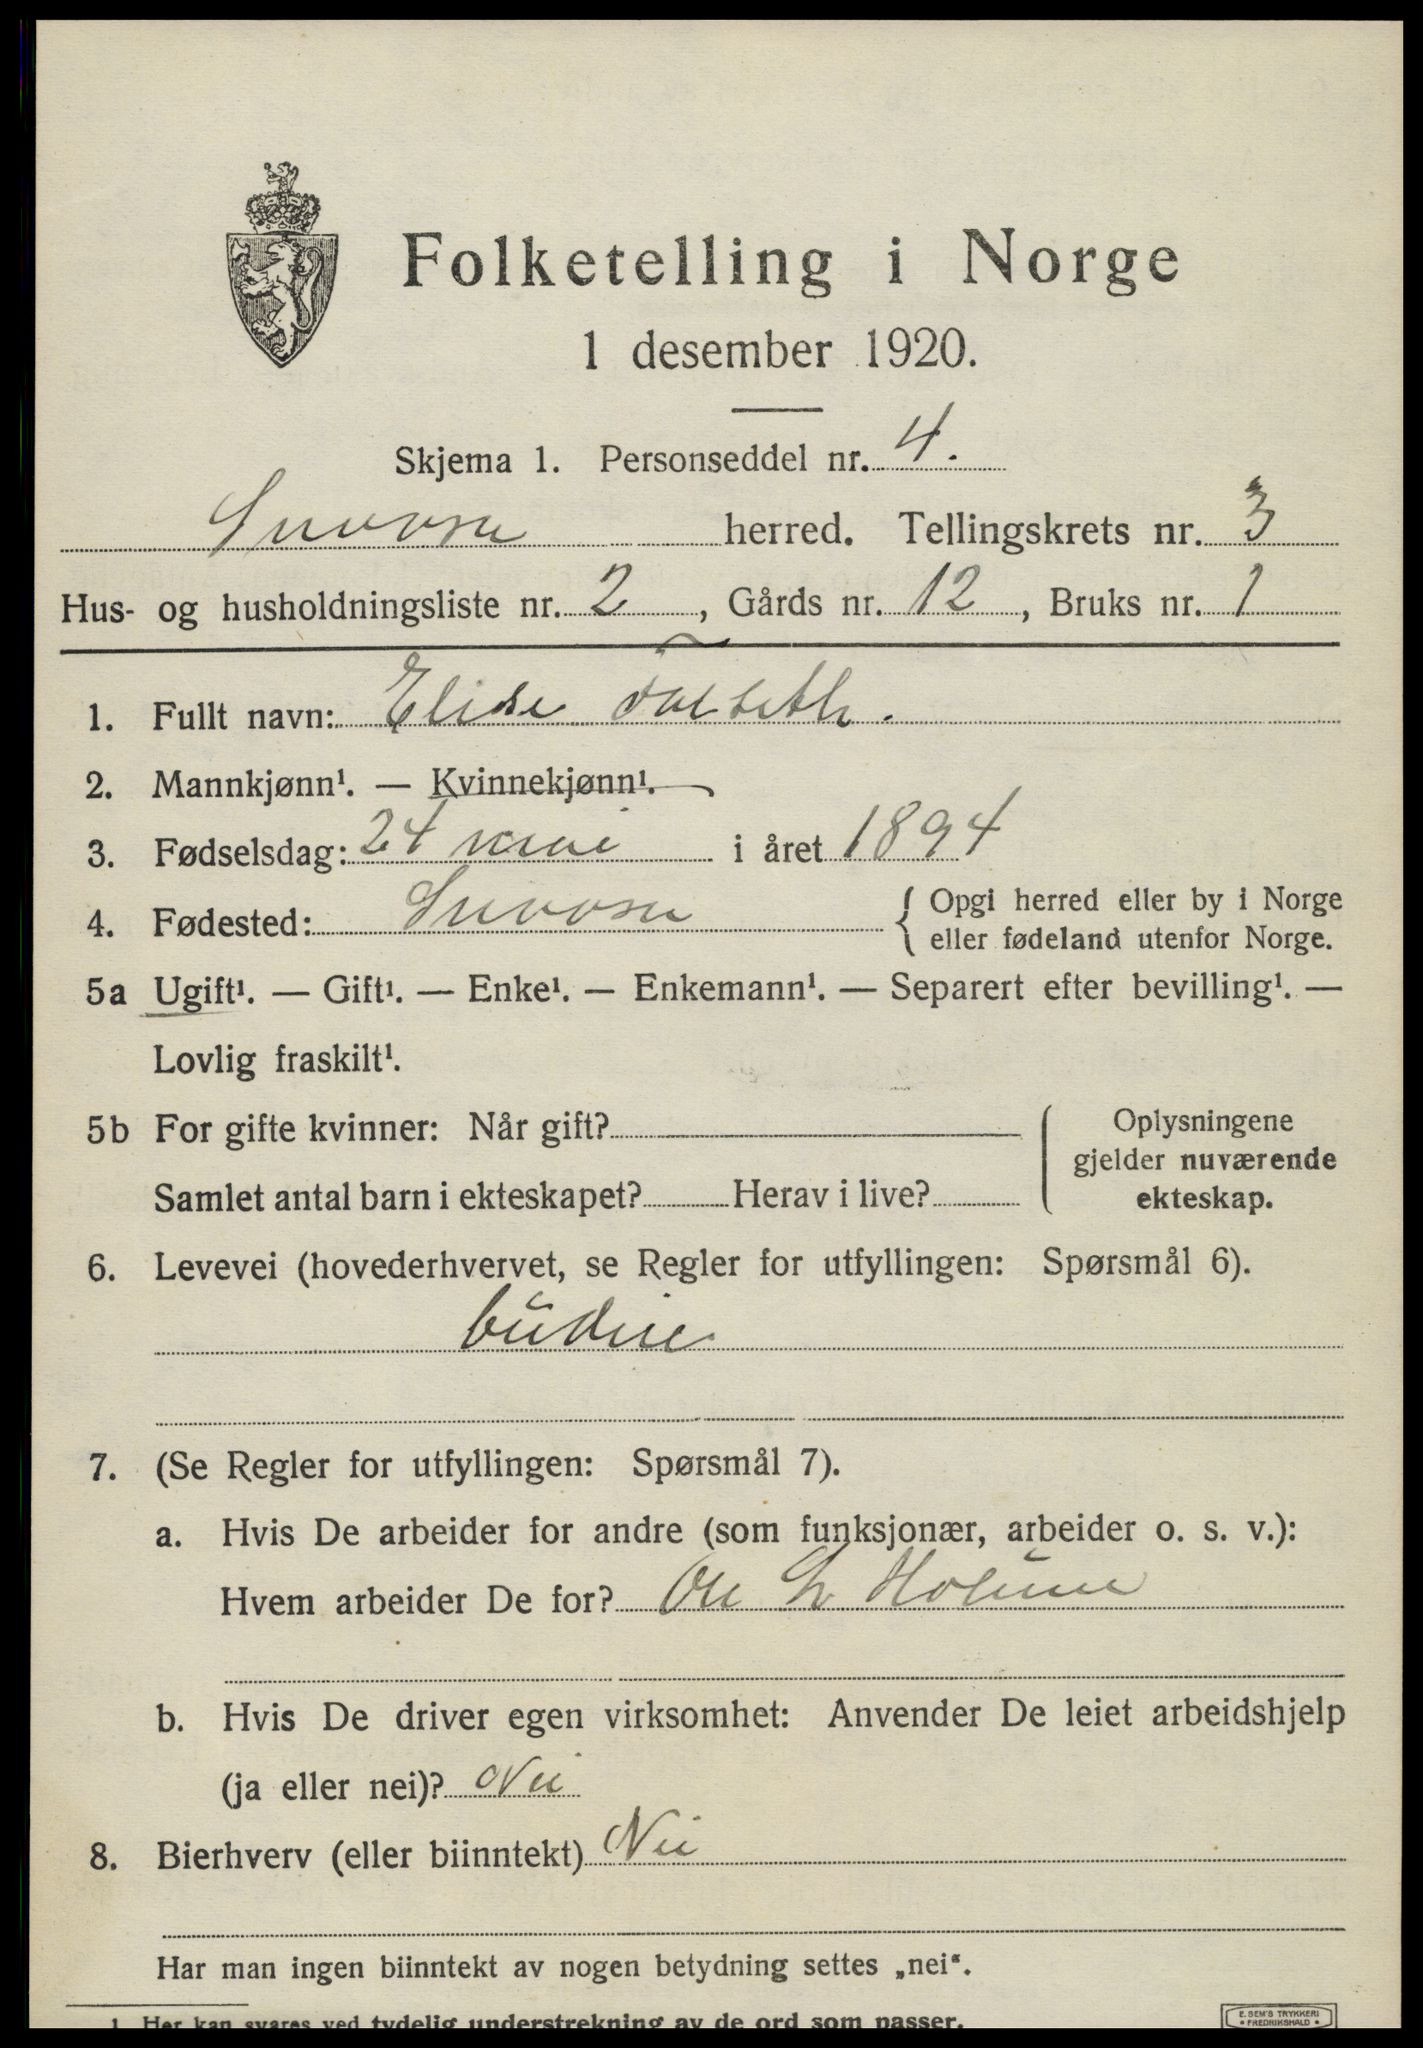 Folketelling i Norge
1 desember 1920.
Skjema 1. Personseddel nr. 4.
Snaasa herred. Tellingskrets nr. 3
Hus- og husholdningsliste nr. 2, Gårds nr. 12, Bruks nr. 1
1. Fullt navn: Elise
2. Mannkjønn¹. — Kvinnekjønn¹.
3. Fødselsdag: 24 mai i året 1894
4. Fødested: Snaasa { Opgi herred eller by i Norge
eller fødeland utenfor Norge.
5a Ugift¹. — Gift¹. — Enke¹. — Enkemann¹. — Separert efter bevilling¹. —
Lovlig fraskilt¹.
5b For gifte kvinner: Når gift?
Samlet antal barn i ekteskapet? Herav i live?
Oplysningene
gjelder nuværende
ekteskap.
6. Levevei (hovederhvervet, se Regler for utfyllingen: Spørsmål 6).
budeie
7. (Se Regler for utfyllingen: Spørsmål 7).
a. Hvis De arbeider for andre (som funksjonær, arbeider o. s. v.):
Hvem arbeider De for? Ole L Holum
b. Hvis De driver egen virksomhet: Anvender De leiet arbeidshjelp
(ja eller nei)? Nei
8. Bierhverv (eller biinntekt) Nei
Har man ingen biinntekt av nogen betydning settes „nei“.
1 Her kan svares ved tydelig understrekning av de ord som passer.
E. SEM'S TRYKKERI
• FREDRIKSHALD •